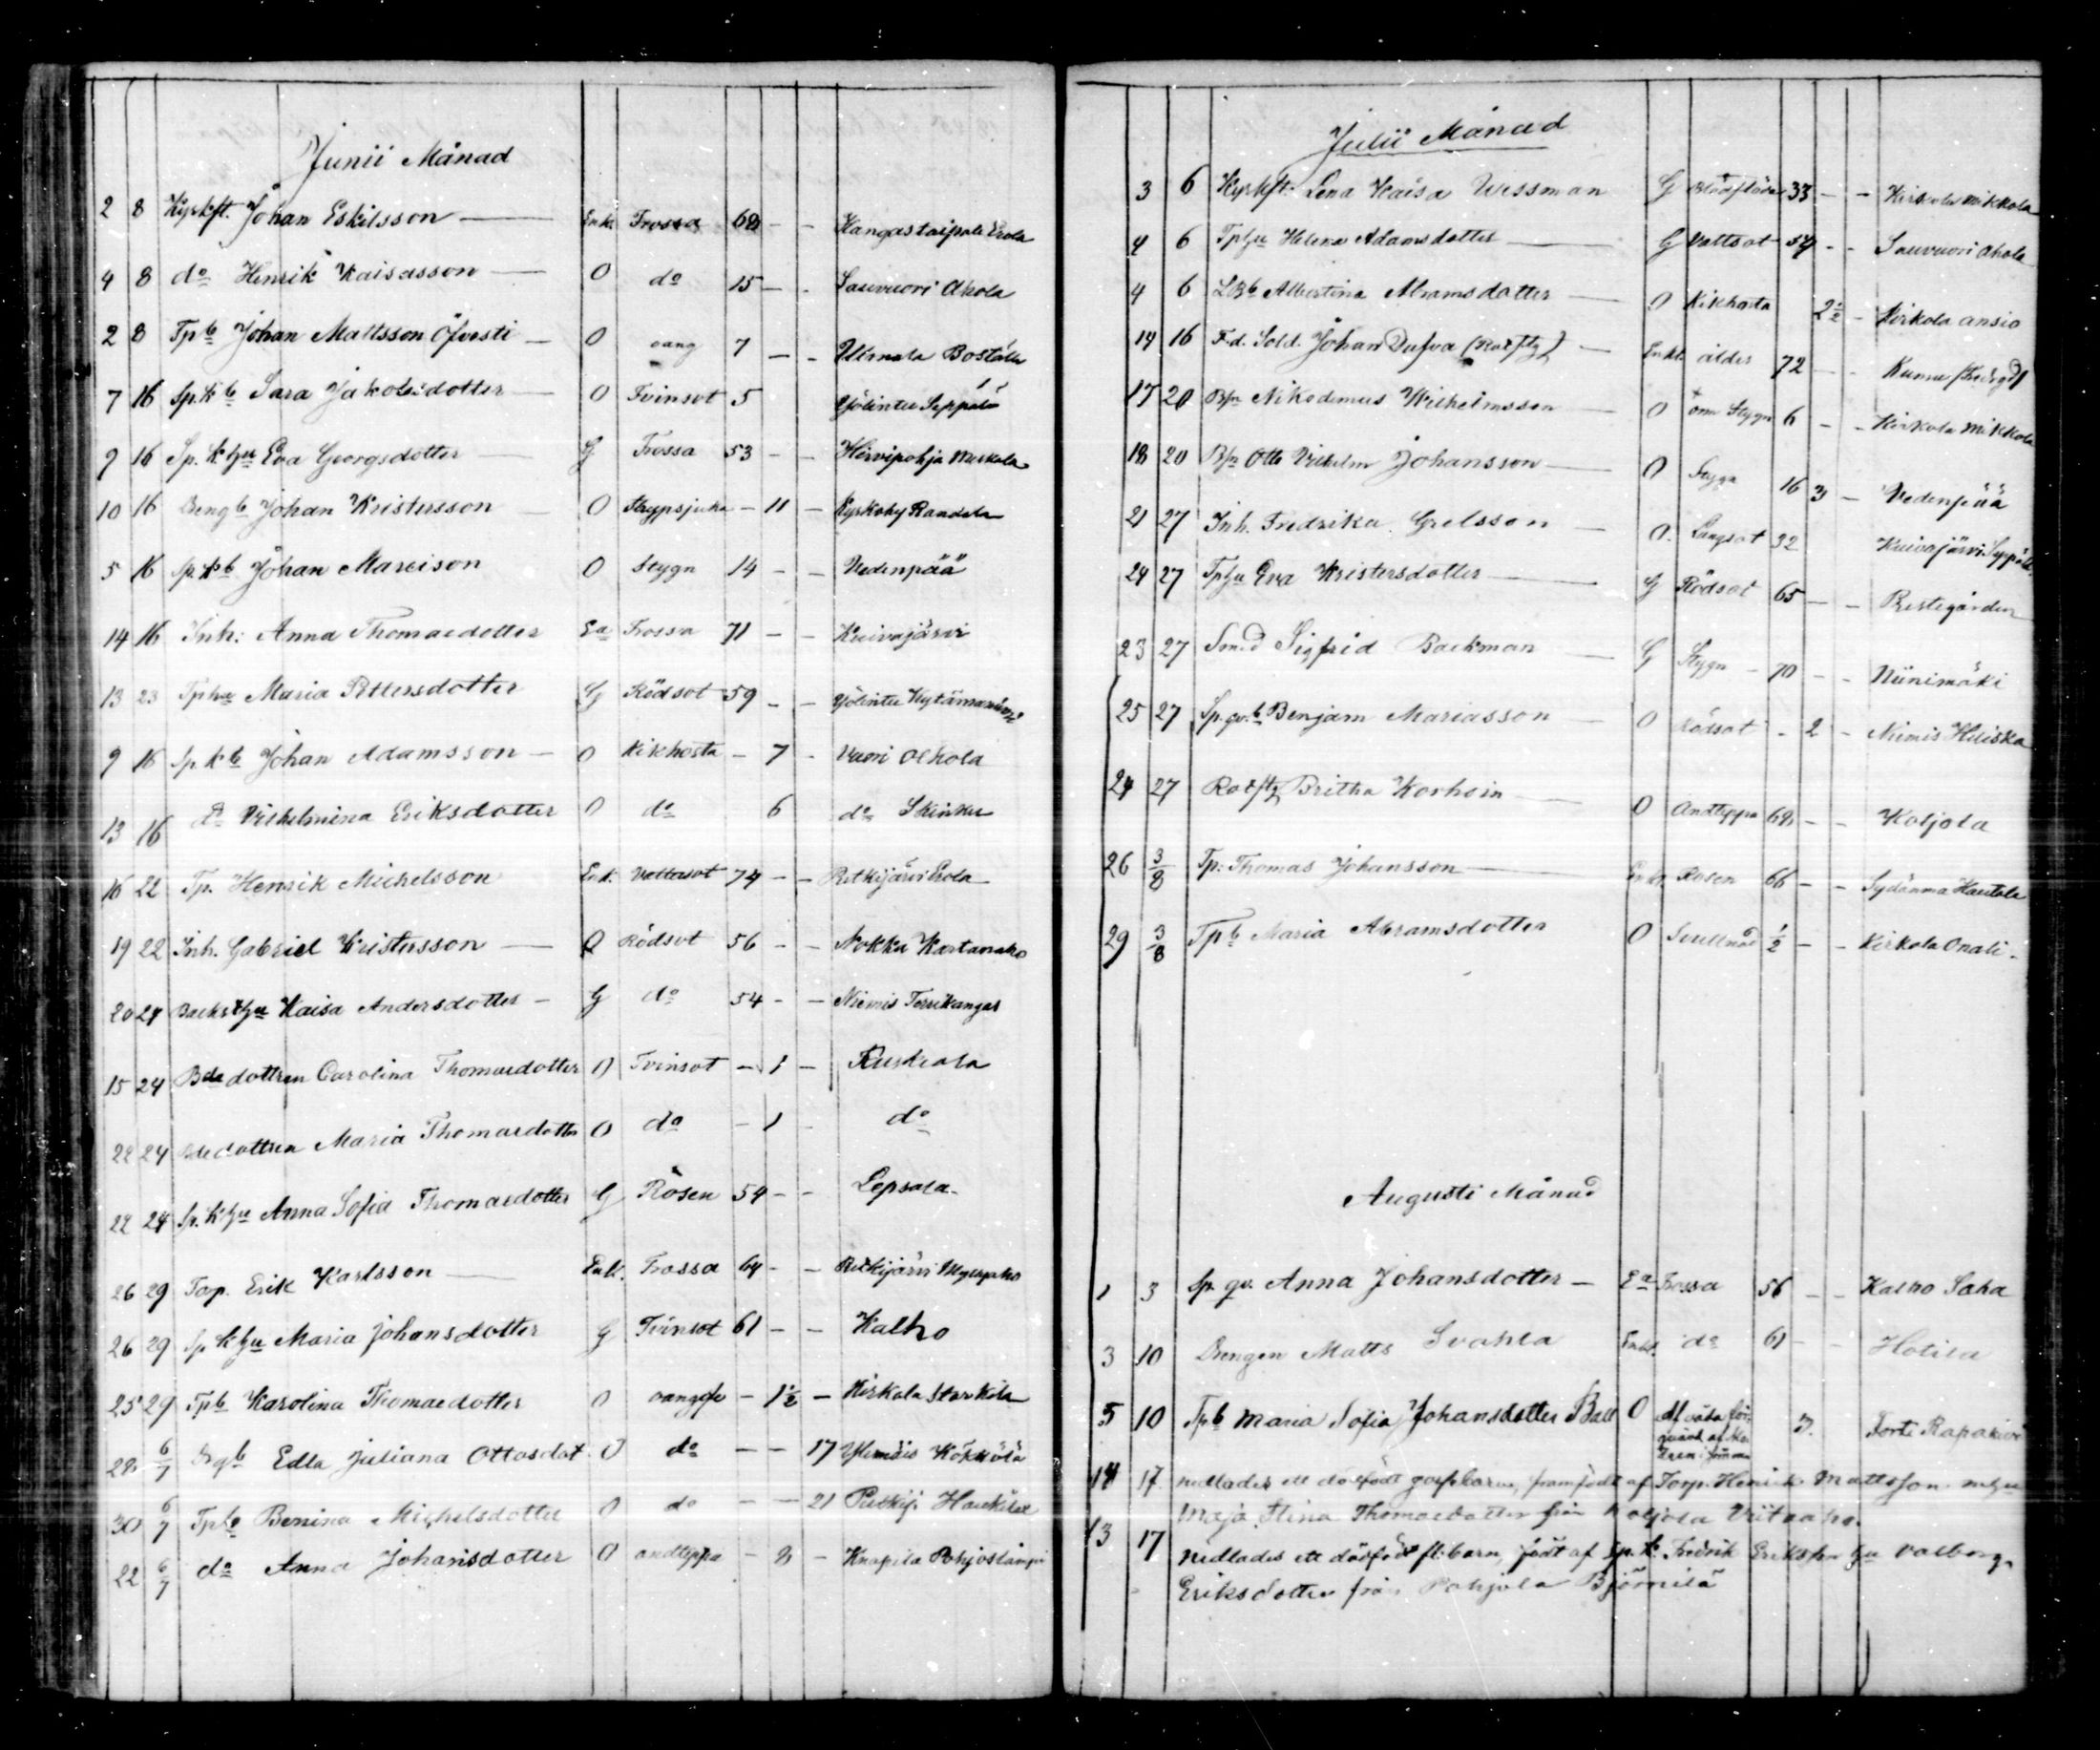 Junii Månad
2 8 Kyrkft. Johan Eskilsson — Enkl. Trossa 68 - - Kangastaipale Erola
4 8 do Henrik Kaisasson — O do 15 - - Sauvuori Ahola
2 8 Tpb Johan Mattsson Öfversti — O oang 7 - - Boställe
7 16 Sp.kb Sara Jakobsdotter — O Tvinsot 5 Yölintu Seppälä
9 16 Sp. khu Eva Georgsdotter — G Trossa 53 - - Hirvipohja
10 16 Drengb Johan Kristersson — O Strypsjuka - 11 - Kyrkoby Randala
5 16 Sp.kb Johan Marcison O Stygn 14 - - Vedenpää
14 16 Inh: Anna Thomaedotter Ea Trossa 71 - - Kuivajärvi
13 23 Tphu Maria Pettersdotter G Rödsot 59 - - Yölintu
9 16 Sp kb Johan Adamsson — O Kikhosta - 7 - Vuori Alhola
13 16 do Vilhelmina Eriksdotter O do 6 do
16 22 Tp. Henrik Michelsson Enk. Vattusot 74 - - Retkijärvi Erola
19 22 Inh. Gabriel Kristersson — O Rödsot 56 - - Nokka Kartanaho
20 24 Backsthu Kaisa Andersdotter - G do 54 - - Niemis Tervikangas
15 24 Bdedottren Carolina Thomaedotter O Tvinsot - 1 - Ruskeala
22 24 Bdedottren Maria Thomaedotter O do - 1 - do
22 24 Sp. khu Anna Sofia Thomaedotter G Rosen 54 - - Lepsala
26 29 Torp. Erik Karlsson — Enkl. Trossa 64 - - Retkijärvi
26 29 Sp khu Maria Johansdotter G Tvinsot 61 - - Kalho
25 29 Tpb Karolina Thomaedotter O oangifv - 1½ - Kirkola Starkila
28 6/7 Drgb Edla Juliana Ottosdot. O do - - 17
30 6/7 Tpb Benina Michelsdotter O do - - 21 Retkij. Haukilax
22 6/7 do Anna Johansdotter O andtäppa - 8 - Knapila
Julii Månad
3 6 Kyrkft. Lena Kaisa Wessman G Blodflöde 33 - - Kirkola Mikkola
4 6 Tphu Helena Adamsdotter — G Vattsot 54 - - Sauvuori Ahola
4 6 Albertina Abramsdotter — O Kikhosta 2½ - Kirkola ansio
14 16 F.d. Sold. Johan Dufva (Rotftg) — Enkl ålder 72 - -
17 20 Bsn Nikodemus Wilhelmsson — O om Stygn 6 - - Kirkola Mikkola
18 20 Bsn Otto Vilhelm Johansson — O Stygn 16 3 - Vedenpää
21 27 Inh. Fredrika Grelsson — O. Lungsot 32 Kuivajärvi Seppälä
24 27 Tphu Eva Kristersdotter — G Rödsot 65 - - Prestegården
23 27 Smed Sigfrid Backman — G Stygn - 70 - - Niinimäki
25 27 Sp.qv.b Benjam Mariasson — O Rödsot - 2 - Niemis Heiska
24 27 Rotftg Britha Korhoin — O Andteppa 68 - - Koljola
26 3/8 Tp: Thomas Johansson — Enkl. Rosen 66 - - Sydänma Hautala
29 3/8 Tpb Maria Abramsdotter O Svullnad ½ - - Kirkola Onali -
Augusti Månad
1 3 Sp. qv. Anna Johansdotter — Ea Trossa 56 - - Kalho Saha
3 10 Drengen Matts Svahla Enkl. do 61 - - Hotila
5 10 Tpb Maria Sofia Johansdotter Ball O Af våda för- 3. Torti Rapakivi
14 17 nedlades ett dödfödt gossebarn, framfödt af Torp. Henrik Mattsson m hu
Maja Stina Thomaedotter från Koljola Viitaaho.
13 17 nedlades ett dödfödt fl. barn, födt af sp. k. Fredrik Eriksson hu Valborg
Eriksdotter från Pohjola Björnilä